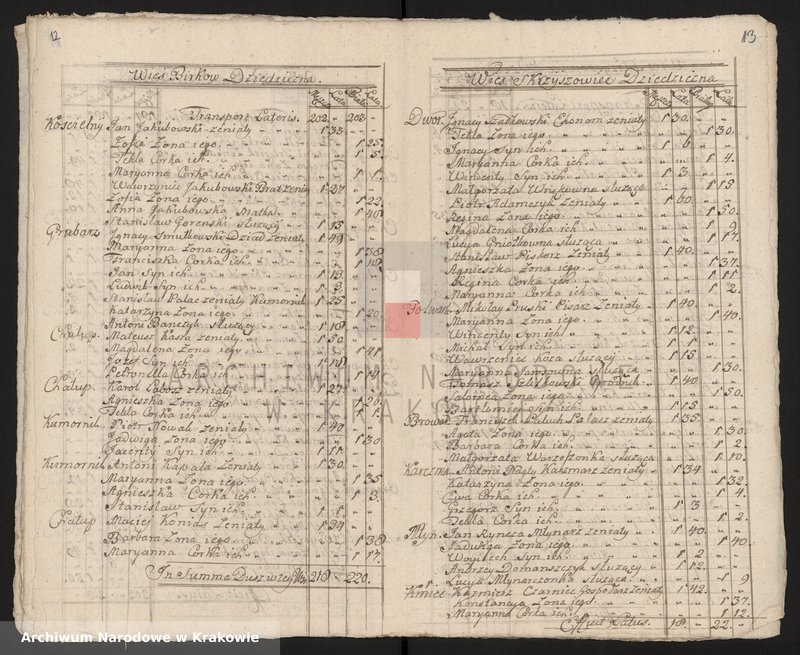 12
Wieś Birków Dziedziczna.
Męzcz. Lata Białe. Lata
Transport Lateris. 202. 203
Kościelny Jan Jakubowski żeniaty 1 33
Zofia Żona iego 1 25
Tekla Corka ich 1 5
Maryanna Corka ich 1 1
Wawrzyniec Jakubowski Brat żeniaty 1 27
Zofia Żona iego 1 22
Anna Jakubowska Matka 1 48
Stanisław Gorenski Służący 1 13
Grabarz Ignacy Smutkowski Dziad Żeniaty 1 49
Maryanna Żona iego 1 38
Franciszka Corka ich 1 18
Jan Syn ich 1 13
Ludwik Syn ich 1 3
Stanisław Palac żeniaty Kumornik 1 25
Katarzyna Żona iego 1 20
Antoni Banczyk Służący 1 18
Chałup. Mateusz Kasza żeniaty 1 50
Magdalena Żona iego 1 41
Jozef Syn ich 1 18
Petronella Corka ich 1 14
Chałup. Karol żeniaty 1 27
Agnieszka Żona iego 1 26
Tekla Corka ich 1 1
Kumornik Piotr Nowak żeniaty 1 40
Jadwiga Żona iego 1 30
Jacenty Syn ich 1 11
Kumornik Antoni Kapała Żeniaty 1 30
Maryanna Żona iego 1 35
Agnieszka Corka ich 1 3
Stanisław Syn ich 1 1
Chałup Maciej Konias Żeniaty 1 34
Barbara Żona iego 1 38
Maryanna Corka ich 1 17
In Summa Dusz w tey Wsi 218 220.
13
Wieś Skrzyszowiec Dziedziczna
Męzcz. Lata Białe. Lata
Dwor. Ignacy Ekonom żeniaty 1 30
Tekla Żona iego 1 30
Ignacy Syn ich 1 6
Maryanna Corka ich 1 4
Wincenty Syn ich 1 3
Małgorzata Wnękowna Służąca 1 15
Piotr Adamczyk żeniaty 1 60
Regina Żona iego 1 50
Magdalena Corka ich 1 9
Łucya Gniółkowna Służąca 1 17
Stanisław Piskorz Żeniaty 1 40
Agnieszka Żona iego 1 37
Regina Corka ich 1 11
Maryanna Corka ich 1 2
Folwark Mikołay Pruski Pisarz Żeniaty 1 40
Maryanna Żona iego 1 40
Wincenty Syn ich 1 12
Michał Syn ich 1 1
Wawrzeniec Koza Służący 1 15
Maryanna Jamsowna Służąca 1 30
Tomasz Żelikowski Ogrodnik 1 40
Salomea Żona iego 1 50
Bartłomiej Syn ich 1 15
Browar. Franciszek Paluch Palacz żeniaty 1 35
Agata Żona iego 1 30
Barbara Corka ich 1 2
Małgorzata Warzechonka służąca 1 10
Karczma Antoni Nagla Karzmarz żeniaty 1 34
Katarzyna Żona iego 1 32
Ewa Corka ich 1 4
Grzegorz Syn ich 1 3
Tekla Corka ich 1 2
Młyn. Jan Ryneca Młynarz żeniaty 1 40
Jadwiga Żona iego 1 40
Woyciech Syn ich 1 2
Andrzey Domanszczyk Służący 1 12
Łucya Młynarczonka Służąca 1 9
Kmiec Kazimierz Czarniec Gospodarz żeniaty 1 42
Konstancya Żona iego 1 37
Maryanna Corka ich 1 12
Efficit Latus. 18 22
ARCHIWUM NARODOWE
W KRAKOWIE
Archiwum Narodowe w Krakowie